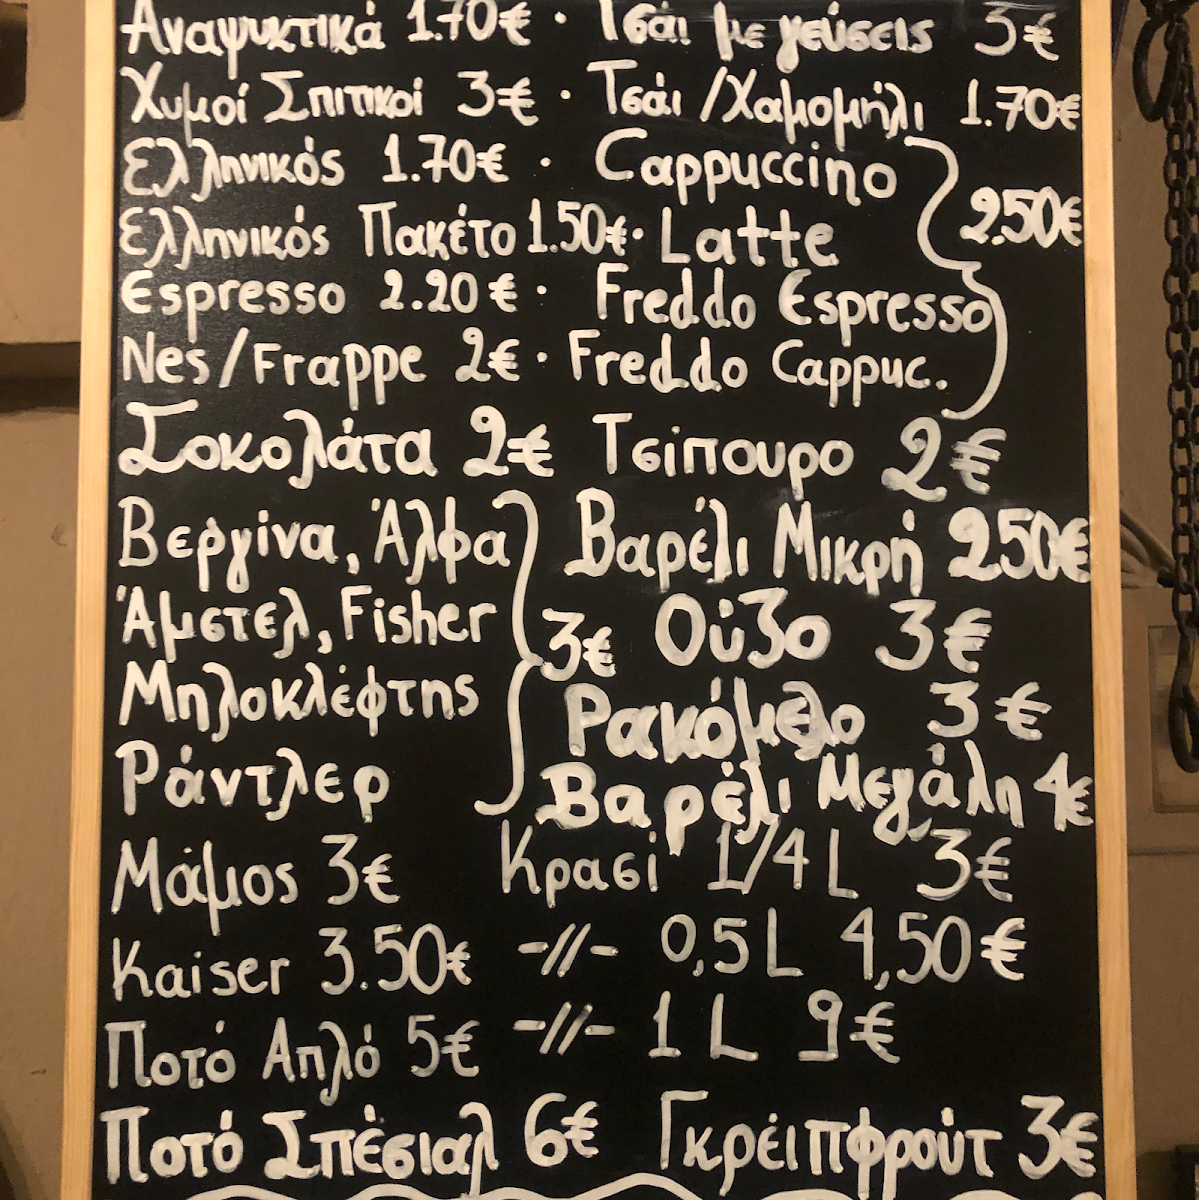 Αναψυκτικά 1.70€ · Τσάι με γεύσεις 3€
Χυμοί Σπιτικοί 3€ · Τσάι /Χαμομήλι 1.70€
Ελληνικός 1.70€ · Cappuccino
Ελληνικός Πακέτο 1.50€· Latte 2.50€
Espresso 2.20€ · Freddo Espresso
Nes/Frappe 2€ · Freddo Cappuc.
Σοκολάτα 2€ Τσίπουρο 2€
Βεργίνα, Άλφα Βαρέλι Μικρή 250€
Άμστελ, Fisher 3€ Ούζο 3€
Μηλοκλέφτης Ρακόμελο 3€
Ράντλερ Βαρέλι Μεγάλη 4€
Μάμος 3€ Κρασί 1/4 L 3€
Kaiser 3.50€ -//- 0,5 L 4,50€
Ποτό Απλό 5€ -//- 1 L 9€
Ποτό Σπέσιαλ 6€ Γκρέιπφρούτ 3€